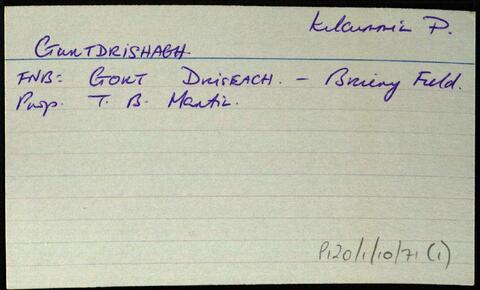 Kilcummin P.
GORTDRISHAGH.
FNB: GORT DRISEACH. – Briery Field.
Prop. T. B. Martin.
P120/1/10/71 (1)